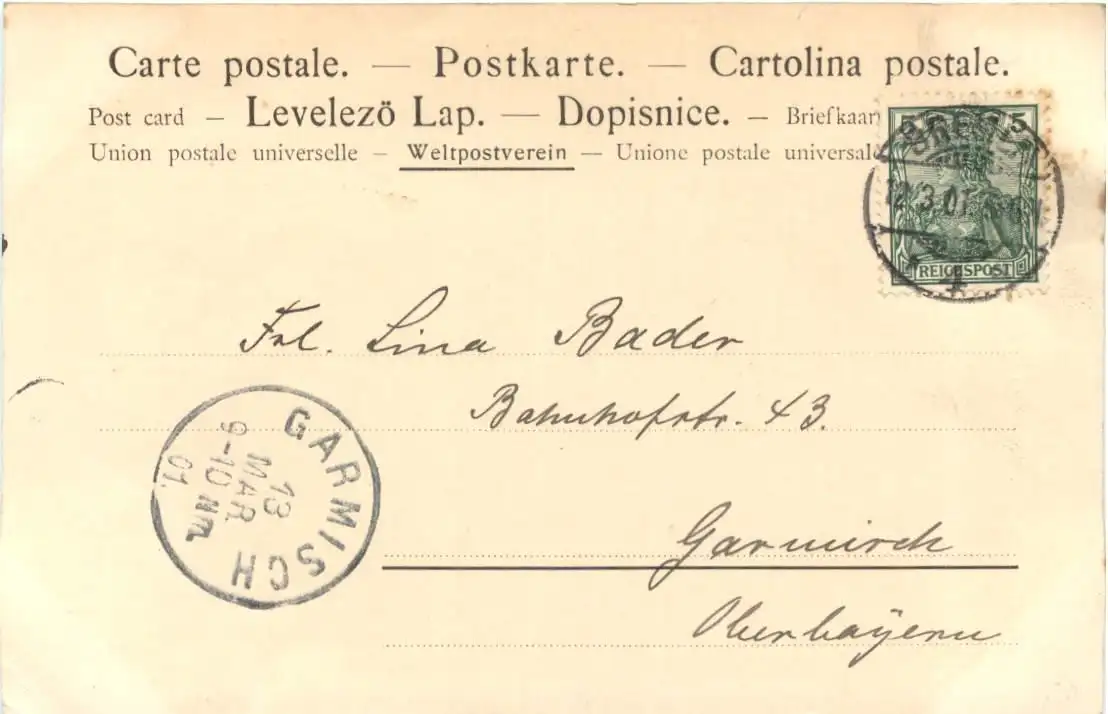 Carte postale. — Postkarte. — Cartolina postale.
Post card — Levelezö Lap. — Dopisnice. — Briefkaar
Union postale universelle — Weltpostverein — Unione postale universal
5
12 3 01
REICHSPOST
4
Frl. Lina Bader
Bahnhofstr. 43.
GARMISCH
13
MAR.
9-10 Nm.
01.
Garmisch
Oberbayern